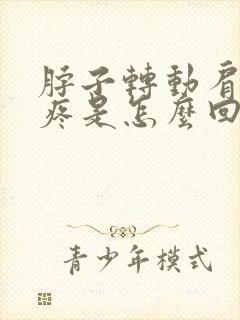 脖子轉動肩
疼是怎麼回
青少年模式